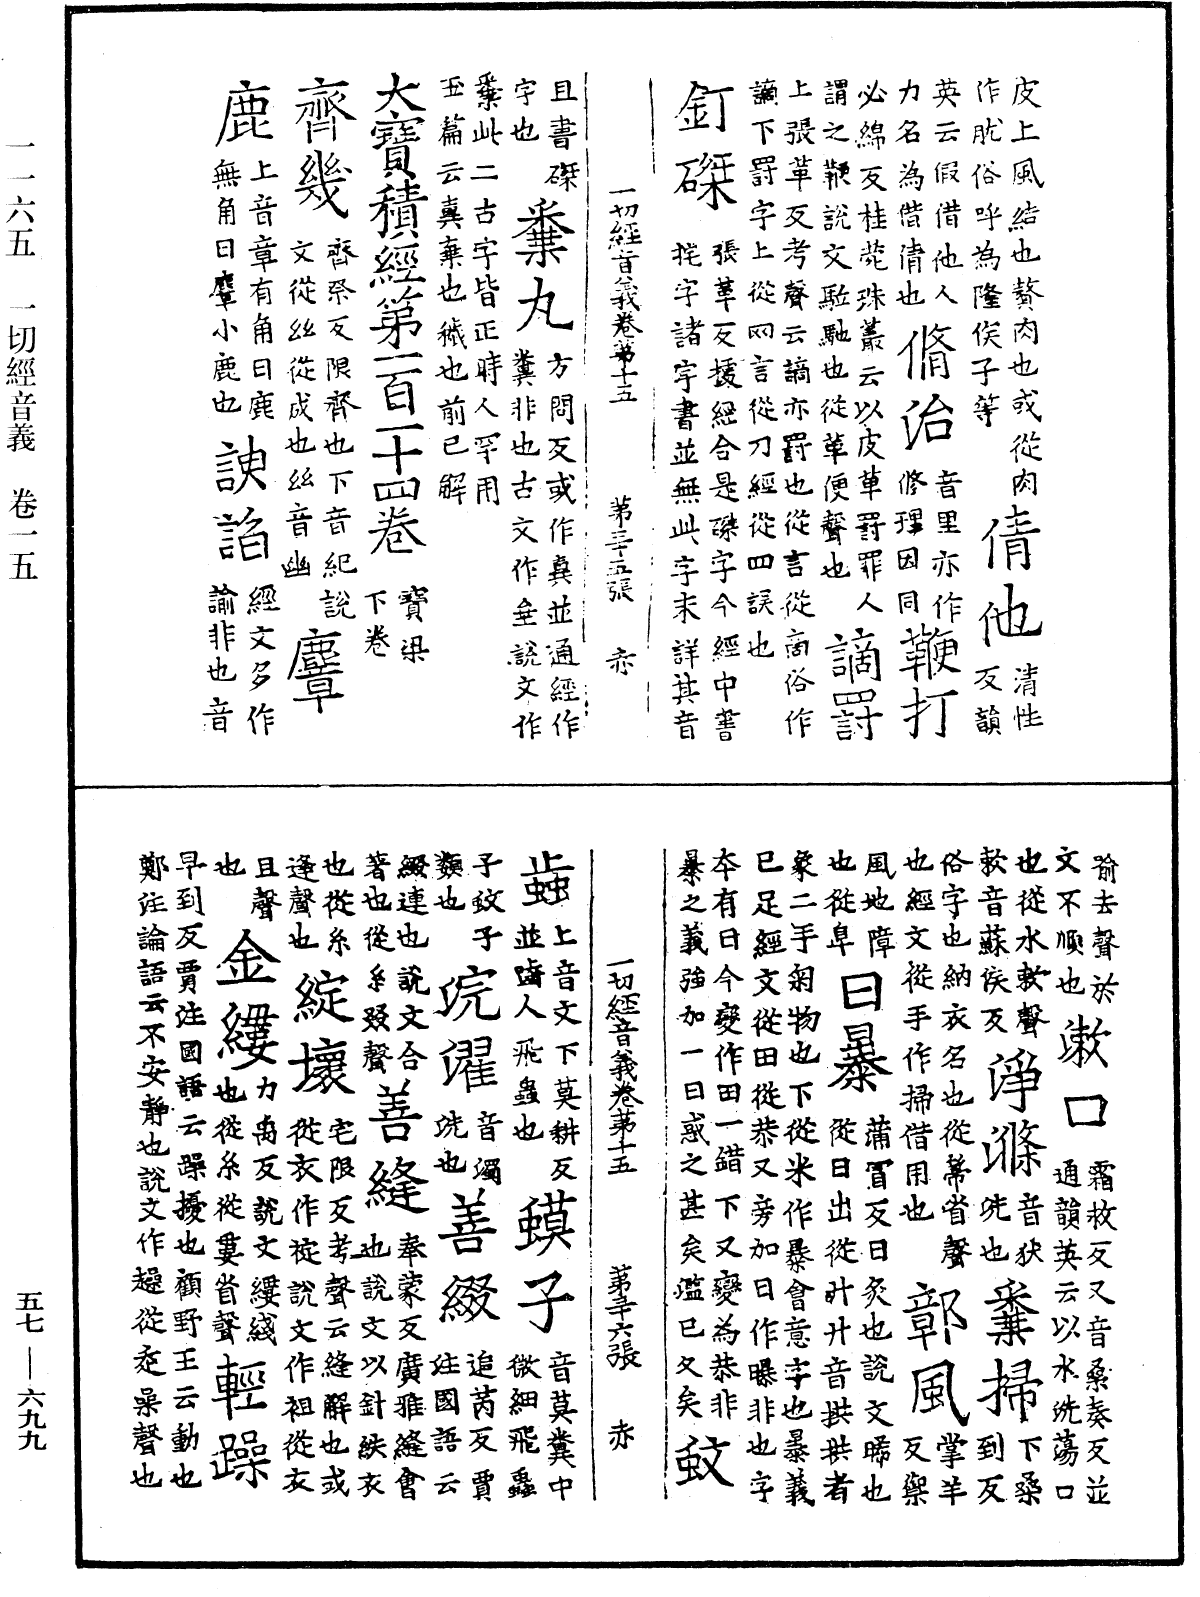 一一六五　一切經音義　卷一五
皮上風結也贅肉也或從肉
作肬俗呼為隆侯子等
倩他
清性反韻
英云假借他人
力名為借倩也
脩治
音里亦作修理因同
鞭打
必綿反桂苑珠叢云以皮革罸罪人
謂之鞭說文驅馳也從革便聲也
謫罸
上張革反考聲云謫亦罸也從言從啇俗作
謫下罸字上從网言從刀經從四誤也
釘磔
張革反援經合是磔字今經中書
挓字諸字書並無此字未詳其音
一切經音義卷第十五　第三十五張　亦
且書磔
字也
糞丸
方問反或作㔇並通經作
糞非也古文作𡊅說文作
𥻔此二古字皆正時人罕用
玉篇云糞棄也穢也前已解
大寶積經第一百一十四卷
寶梁
下卷
齊幾
齊祭反限齊也下音紀說
文從𢆶從戍也𢆶音幽
麞鹿
上音章有角曰鹿
無角曰麞小鹿也
諛諂
經文多作
諭非也音
喻去聲於
文不順也
漱口
霜救反又音桑奏反並
通韻英云以水洗蕩口
也從水欶聲
欶音蘇侯反
淨滌
音狄
洗也
糞掃
下桑
到反
俗字也納衣名也從帚省聲
也經文從手作掃借用也
鄣風
掌羊
反禦
風地障
也從阜
日暴
蒲冒反日炙也說文晞也
從日出從廾廾音拱拱者
象二手匊物也下從米作暴會意字也暴義
已足經文從田從恭又旁加日作曝非也字
本有日今變作田一錯下又變為恭非
暴之義強加一日惑之甚矣濫已久矣
蚊
一切經音義卷第十五　第三十六張　亦
蝱
上音文下莫耕反
並齧人飛蟲也
蟆子
音莫糞中
微細飛蟲
子蚊子
類也
浣濯
音濁
洗也
善綴
追芮反賈
注國語云
綴連也說文合
著也從糸叕聲
善縫
奉蒙反廣雅縫會
也說文以針紩衣
也從糸
逢聲也
綻壞
宅限反考聲云縫解也或
從衣作䘺說文作袒從衣
且聲
也
金縷
力禹反說文縷綫
也從糸從婁省聲
輕躁
早到反賈注國語云躁擾也顧野王云動也
鄭注論語云不安靜也說文作趮從走喿聲也
五七—六九九